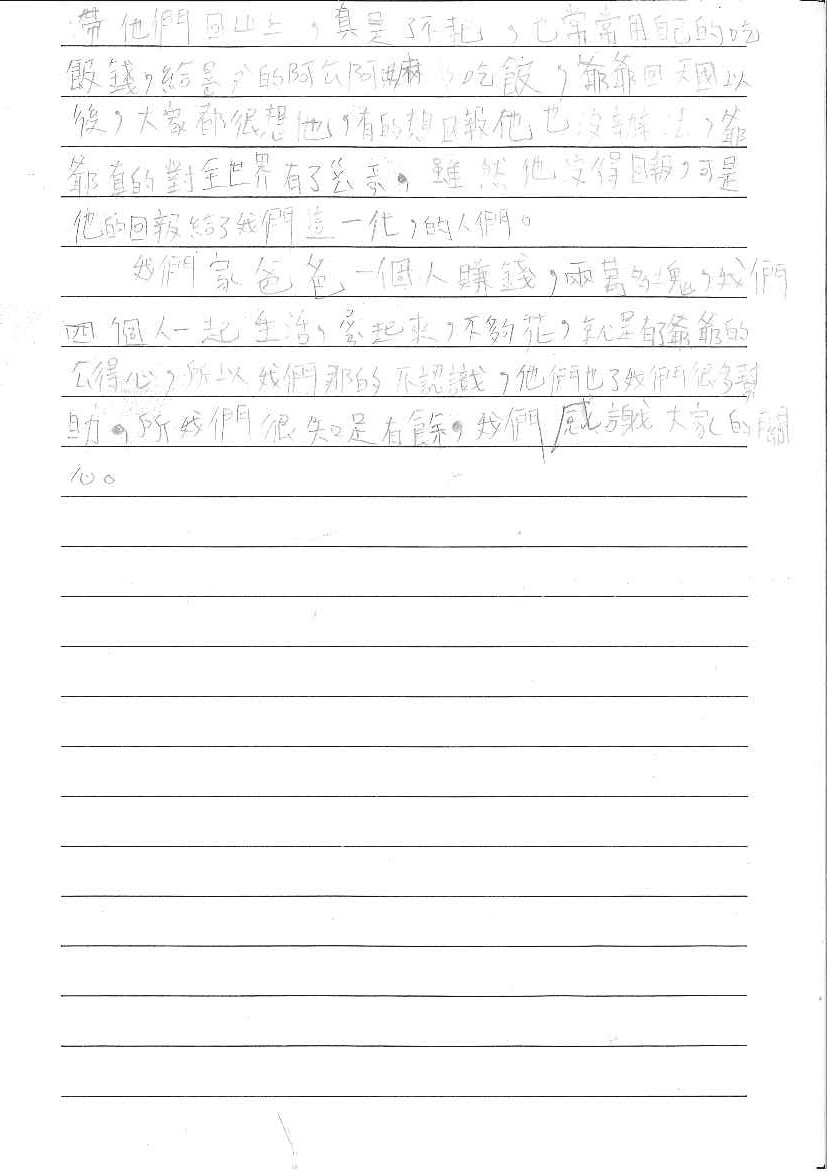 帶他們回山上，真是了不起，也常常用自己的吃
飯錢，給是的阿公阿麻，吃飯，爺爺回天國以
後，大家都很想他，有的想回報他也沒辦法，爺
爺真的對全世界有了。雖然他沒得回報，可是
他的回報給了我們這一代，的人們。
我們家爸爸一個人賺錢，兩萬多塊，我們
四個人一起生活，起來，不夠花，就是有了爺爺的
公得心，所以我們那的不認識，他們也了我們很多幫
助。所我們很知足有餘。我們感謝大家的關
心。